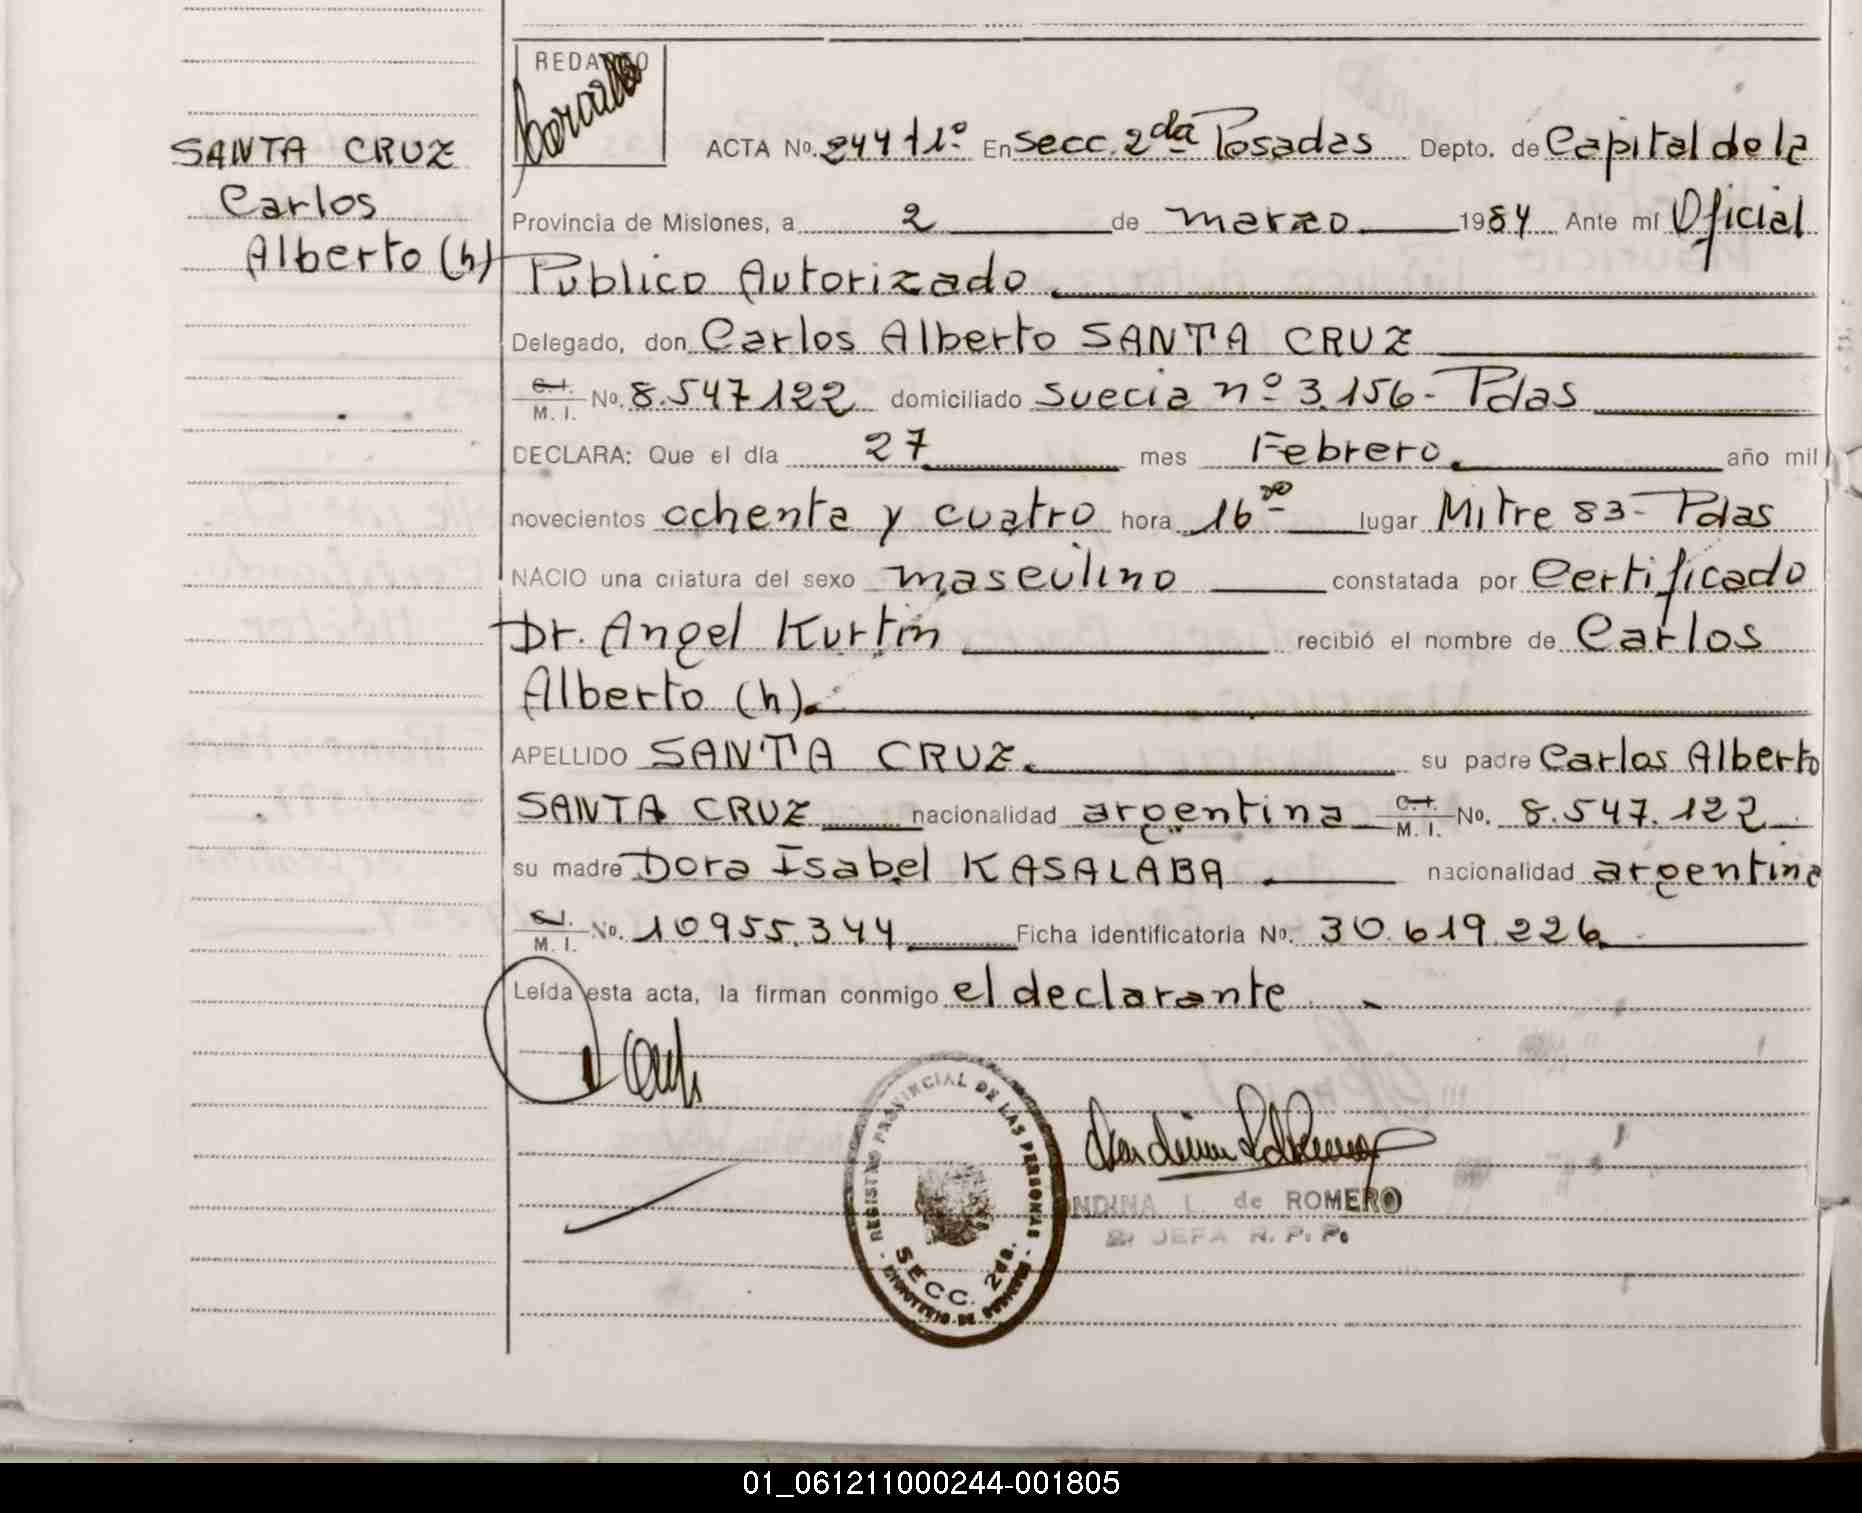 REDACTO
SANTA CRUZ
Carlos
Alberto (h)
ACTA No. 244 t1º En secc. 2da Posadas Depto. de Capital de la
Provincia de Misiones, a 2 de marzo 1984 Ante mí Oficial
Publico Autorizado.
Delegado, don Carlos Alberto SANTA CRUZ
C.I. M. I. No. 8.547.122 domiciliado suecia nº 3.156- Pdas
DECLARA: Que el día 27 mes Febrero. año mil
novecientos ochenta y cuatro hora 16 00 lugar Mitre 83- Pdas
NACIO una criatura del sexo masculino constatada por Certificado
Dr. Angel Kurtin recibió el nombre de Carlos
Alberto (h).
APELLIDO SANTA CRUZ. su padre Carlos Alberto
SANTA CRUZ nacionalidad argentina C.I. M. I. No. 8.547.122
su madre Dora Isabel KASALABA nacionalidad argentina
M. I. No. 10955.344 Ficha identificatoria No. 30.619.226
Leída esta acta, la firman conmigo el declarante.
REGISTRO PROVINCIAL DE LAS PERSONAS
SECC. 2da.
NDINA L. de ROMERO
JEFA R. P. P.
01_061211000244-001805